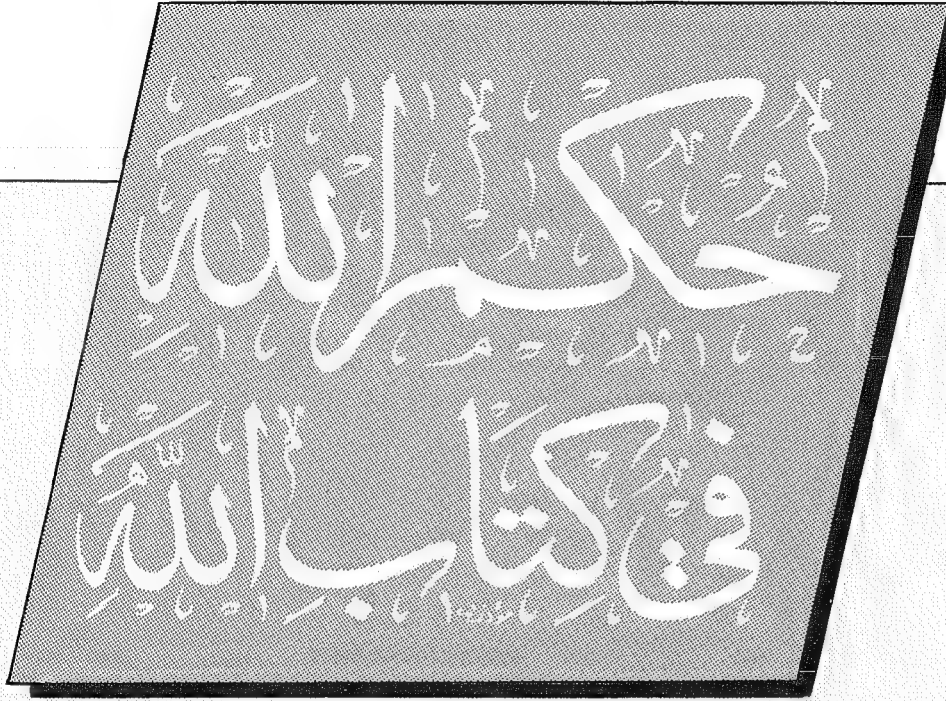 حُكْمُ اللَّهِ
في كِتَابِ اللَّهِ